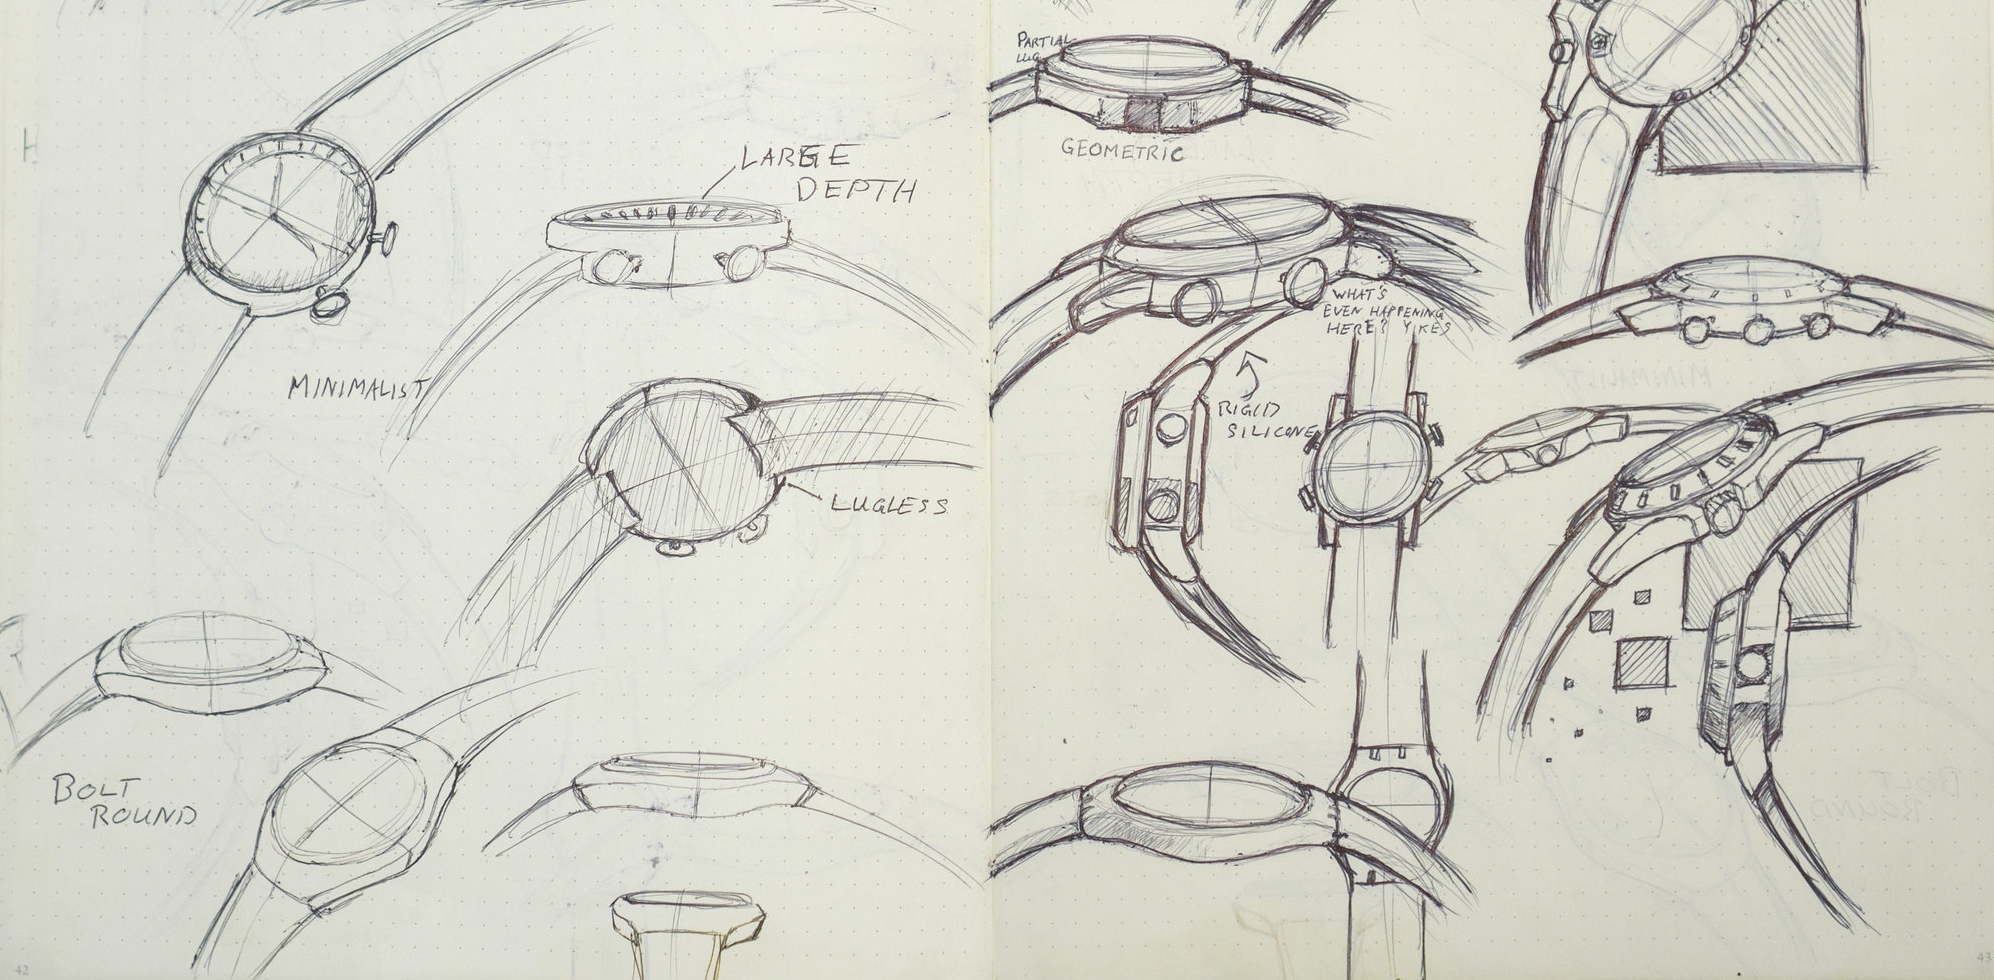 LARGE
DEPTH
MINIMALIST
LUGLESS
BOLT
ROUND
42
PARTIAL
LUG
GEOMETRIC
WHAT'S
EVEN HAPPENING
HERE? YIKES
RIGID
SILICONE
43